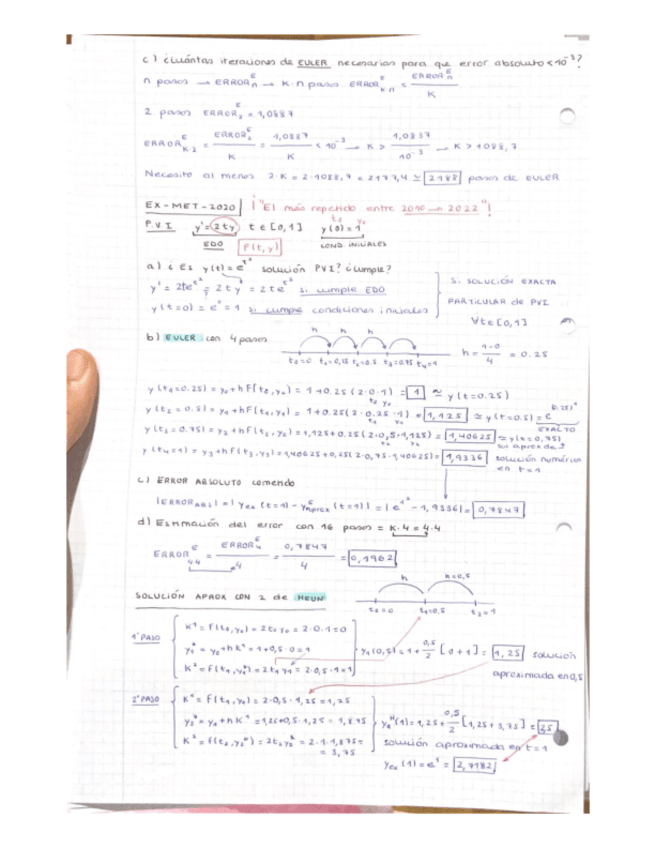 c) ¿Cuántas iteraciones de EULER necesarias para que error absoluto < 10⁻³?
n pasos → ERRORₙᴱ → K·n pasos ERROR_{K·n}ᴱ = ERRORₙᴱ / K
2 pasos ERROR₂ᴱ = 1,0887
ERROR_{K·2}ᴱ = ERROR₂ᴱ / K = 1,0887 / K < 10⁻³ → K > 1,0887 / 10⁻³ → K > 1088,7
Necesito al menos 2·K = 2·1088,7 = 2177,4 ≃ 2188 pasos de EULER
EX-MET-2020 ¡"El más repetido entre 2010 → 2022"!
P.V.I y' = 2ty t ∈ [0,1] y(0) = 1
EDO F(t,y) COND. INICIALES
a) ¿Es y(t) = e^{t²} solución PVI? ¿Cumple?
y' = 2te^{t²} = 2ty = 2te^{t²} si cumple EDO
y(t=0) = e⁰ = 1 si cumple condiciones iniciales
Si SOLUCIÓN EXACTA
PARTICULAR de PVI
∀t ∈ [0,1]
b) EULER con 4 pasos
h h h
t₀=0 t₁=0,25 t₂=0.5 t₃=0.75 t₄=1
h = 1-0 / 4 = 0.25
y(t₁=0.25) = y₀+hF(t₀,y₀) = 1+0.25(2·0·1) = 1 ≃ y(t=0.25)
y(t₂=0.5) = y₁+hF(t₁,y₁) = 1+0.25(2·0.25·1) = 1,125 ≃ y(t=0.5) = e^{(0.25)²}
EXACTO
y(t₃=0.75) = y₂+hF(t₂,y₂) = 1,125+0.25(2·0,5·1,125) = 1,40625 ≃ y(t=0,75)
y(t₄=1) = y₃+hF(t₃,y₃) = 1,40625+0,25(2·0,75·1,40625) = 1,9336 solución numérica
en t=1
c) ERROR ABSOLUTO comendo
|ERROR_{ABS}| = |y_{ex}(t=1) - y_{aprox}ᴱ(t=1)| = |e^{1²} - 1,9336| = 0,7847
d) Estimación del error con 16 pasos = K·4 = 4·4
ERROR_{4·4}ᴱ = ERROR₄ᴱ / 4 = 0,7847 / 4 = 0,1962
SOLUCIÓN APROX CON 2 de HEUN
h h=0,5
t₀=0 t₁=0,5 t₂=1
1º PASO
K¹ = F(t₀,y₀) = 2t₀y₀ = 2·0·1 = 0
y₁* = y₀+hK¹ = 1+0,5·0 = 1
K² = F(t₁,y₁*) = 2t₁y₁ = 2·0,5·1 = 1
y₁(0,5) = 1 + 0,5/2 [0+1] = 1,25 solución
aproximada en 0,5
2º PASO
K¹ = F(t₁,y₁) = 2·0,5·1,25 = 1,25
y₂* = y₁+hK¹ = 1,25+0,5·1,25 = 1,875
K² = F(t₂,y₂*) = 2t₂y₂* = 2·1·1,875 =
= 3,75
y₂ᴴ(1) = 1,25 + 0,5/2 [1,25+3,75] = 2,5
solución aproximada en t=1
y_{ex}(1) = e¹ = 2,7182